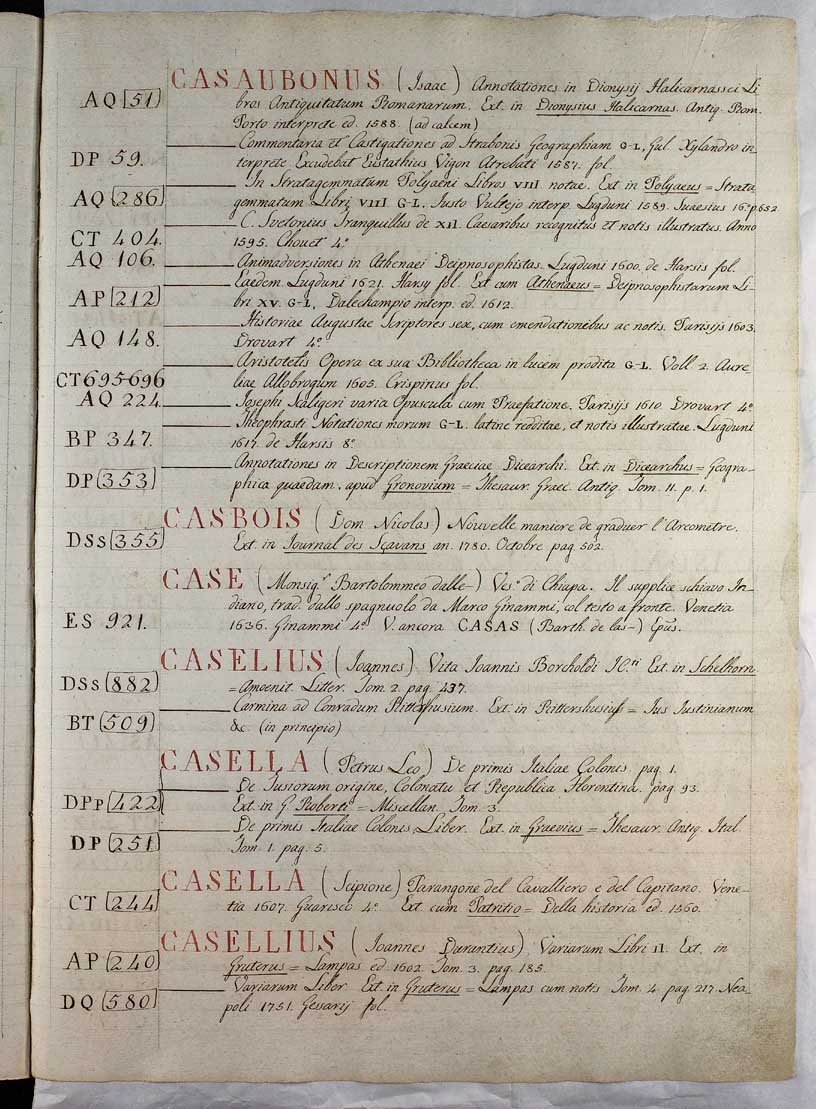 CASAUBONUS (Isaac) Annotationes in Dionysij Halicarnassei Li
AQ 51 bros Antiquitatum Romanarum. Ext. in Dionysius Halicarnas. Antiq. Rom.
Porto interprete ed. 1588. (ad calcem)
Commentaria et Castigationes ad Strabonis Geographiam G-L. Gul. Xylandro in
DP 59. terprete. Excudebat Eustathius Vigon Atrebati 1587. fol.
In Stratagemmatum Polyaeni Libros VIII notae. Ext in Polyaeus = Strata
AQ 286 gemmatum Libri VIII G-L. Justo Vultejo interp. Lugduni 1589. Suaesius 16º p. 552
C. Svetonius Tranquillus de XII. Caesaribus recognitus et notis illustratus. Anno
CT 404. 1595. Chouet 4º
AQ 106. Animadversiones in Athenaei Deipnosophistas. Lugduni 1600. de Harsis fol.
Eaedem Lugduni 1621. Harsy fol. Ext cum Athenaeus = Deipnosophistarum Li-
AP 212 bri XV. G-L, Dalechampio interp. ed. 1612.
Historiae Augustae Scriptores sex, cum emendationibus ac notis. Parisijs 1603.
AQ 148. Drovart 4º
Aristotelis Opera ex sua Bibliotheca in lucem prodita G-L. Voll. 2. Aure-
CT 695-696 liae Allobrogum 1605. Crispinus fol.
AQ 224. Josephi Scaligeri varia Opuscula cum Praefatione. Parisijs 1610. Drovart 4º
Theophrasti Notationes morum G-L. latine redditae, et notis illustratae. Lugduni
BP 347. 1617. de Harsis 8º
Annotationes in Descriptionem Graeciae Dicearchi. Ext. in Dicearchus = Geogra-
DP 353 phica quaedam. apud Gronovium = Thesaur. Graec. Antiq. Tom. 11. p. 1.
CASBOIS (Dom Nicolas) Nouvelle maniere de graduer l'Areometre.
DSs 355 Ext. in Journal des Sçavans an. 1780. Octobre pag. 502.
CASE (Monsig.r Bartolommeo dalle-) Ves.º di Chiapa. Il supplice schiavo In-
diano, trad. dallo spagnuolo da Marco Ginammi, col testo a fronte. Venetia
ES 921. 1636. Ginammi 4º V. ancora CASAS (Barth. de las-) Epus.
CASELIUS (Joannes) Vita Joannis Borcholdi JC.ti Ext. in Schelhorn
DSs 882 = Amoenit. Litter. Tom. 2. pag. 437.
Carmina ad Conradum Rittershusium. Ext. in Rittershusius = Jus Justinianum
BT 509 &c. (in principio)
CASELLA (Petrus Leo) De primis Italiae Colonis. pag. 1.
De Tuscorum origine, Colonatu et Republica Florentina. pag. 93.
DPp 422 Ext. in G. Roberti = Miscellan. Tom. 3.
De primis Italiae Colonis Liber. Ext. in Graevius = Thesaur. Antiq. Ital.
DP 251 Tom. 1. pag. 5.
CASELLA (Scipione) Parangone del Cavalliero e del Capitano. Vene-
CT 244 tia 1607. Guarisco 4º Ext cum Patritio = Della historia ed. 1560.
CASELLIUS (Joannes Durantius) Variarum Libri II. Ext. in
AP 240 Gruterus = Lampas ed 1602. Tom. 3. pag. 185.
Variarum Liber. Ext. in Gruterus = Lampas cum notis Tom. 4. pag. 217. Nea-
DQ 580 poli 1751. Gessarij fol.